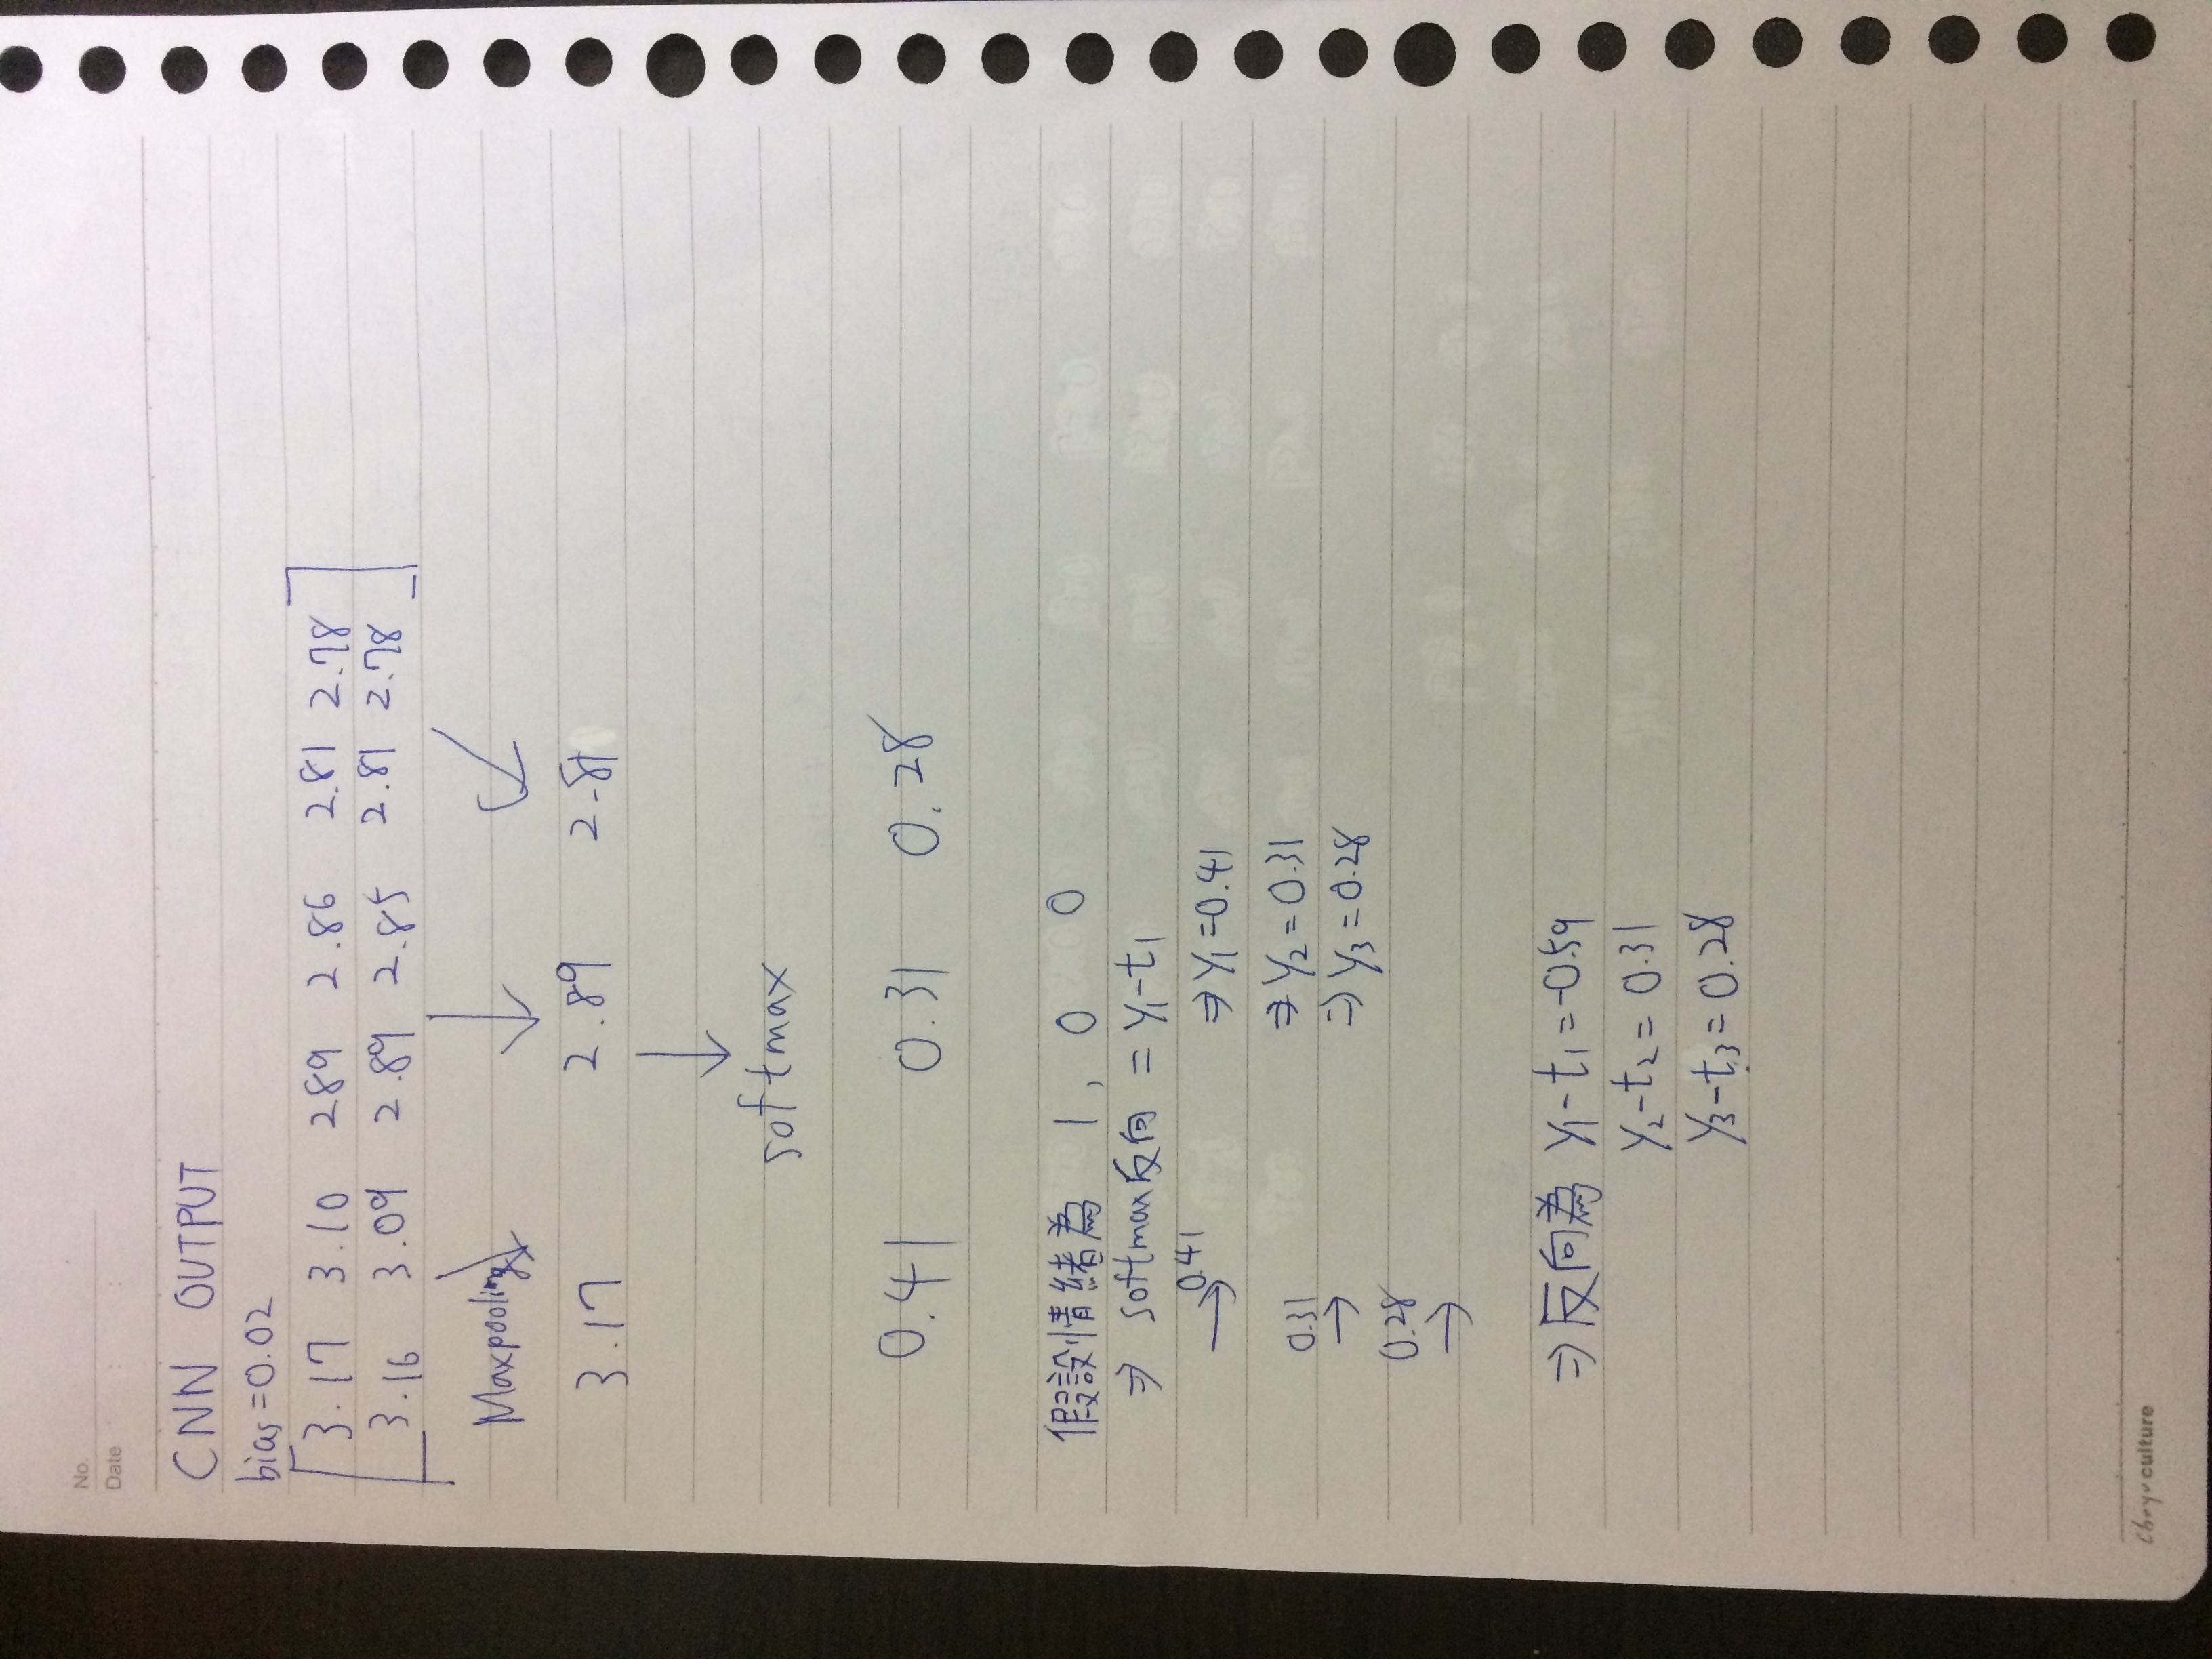 No.
Date : :
CNN OUTPUT
bias=0.02
3.17 3.10 289 2.86 2.81 2.78
3.16 3.09 2.89 2.85 2.81 2.78
Maxpooling
3.17 2.89 2.81
softmax
0.41 0.31 0.28
假設情緒為 1, 0 0
⇒ softmax反向 = y₁-t₁
→ 0.41 ⇒ y₁=0.41
0.31 → ⇒ y₂=0.31
0.28 → ⇒ y₃=0.28
⇒ 反向為 y₁-t₁=-0.59
y₂-t₂= 0.31
y₃-t₃= 0.28
culture